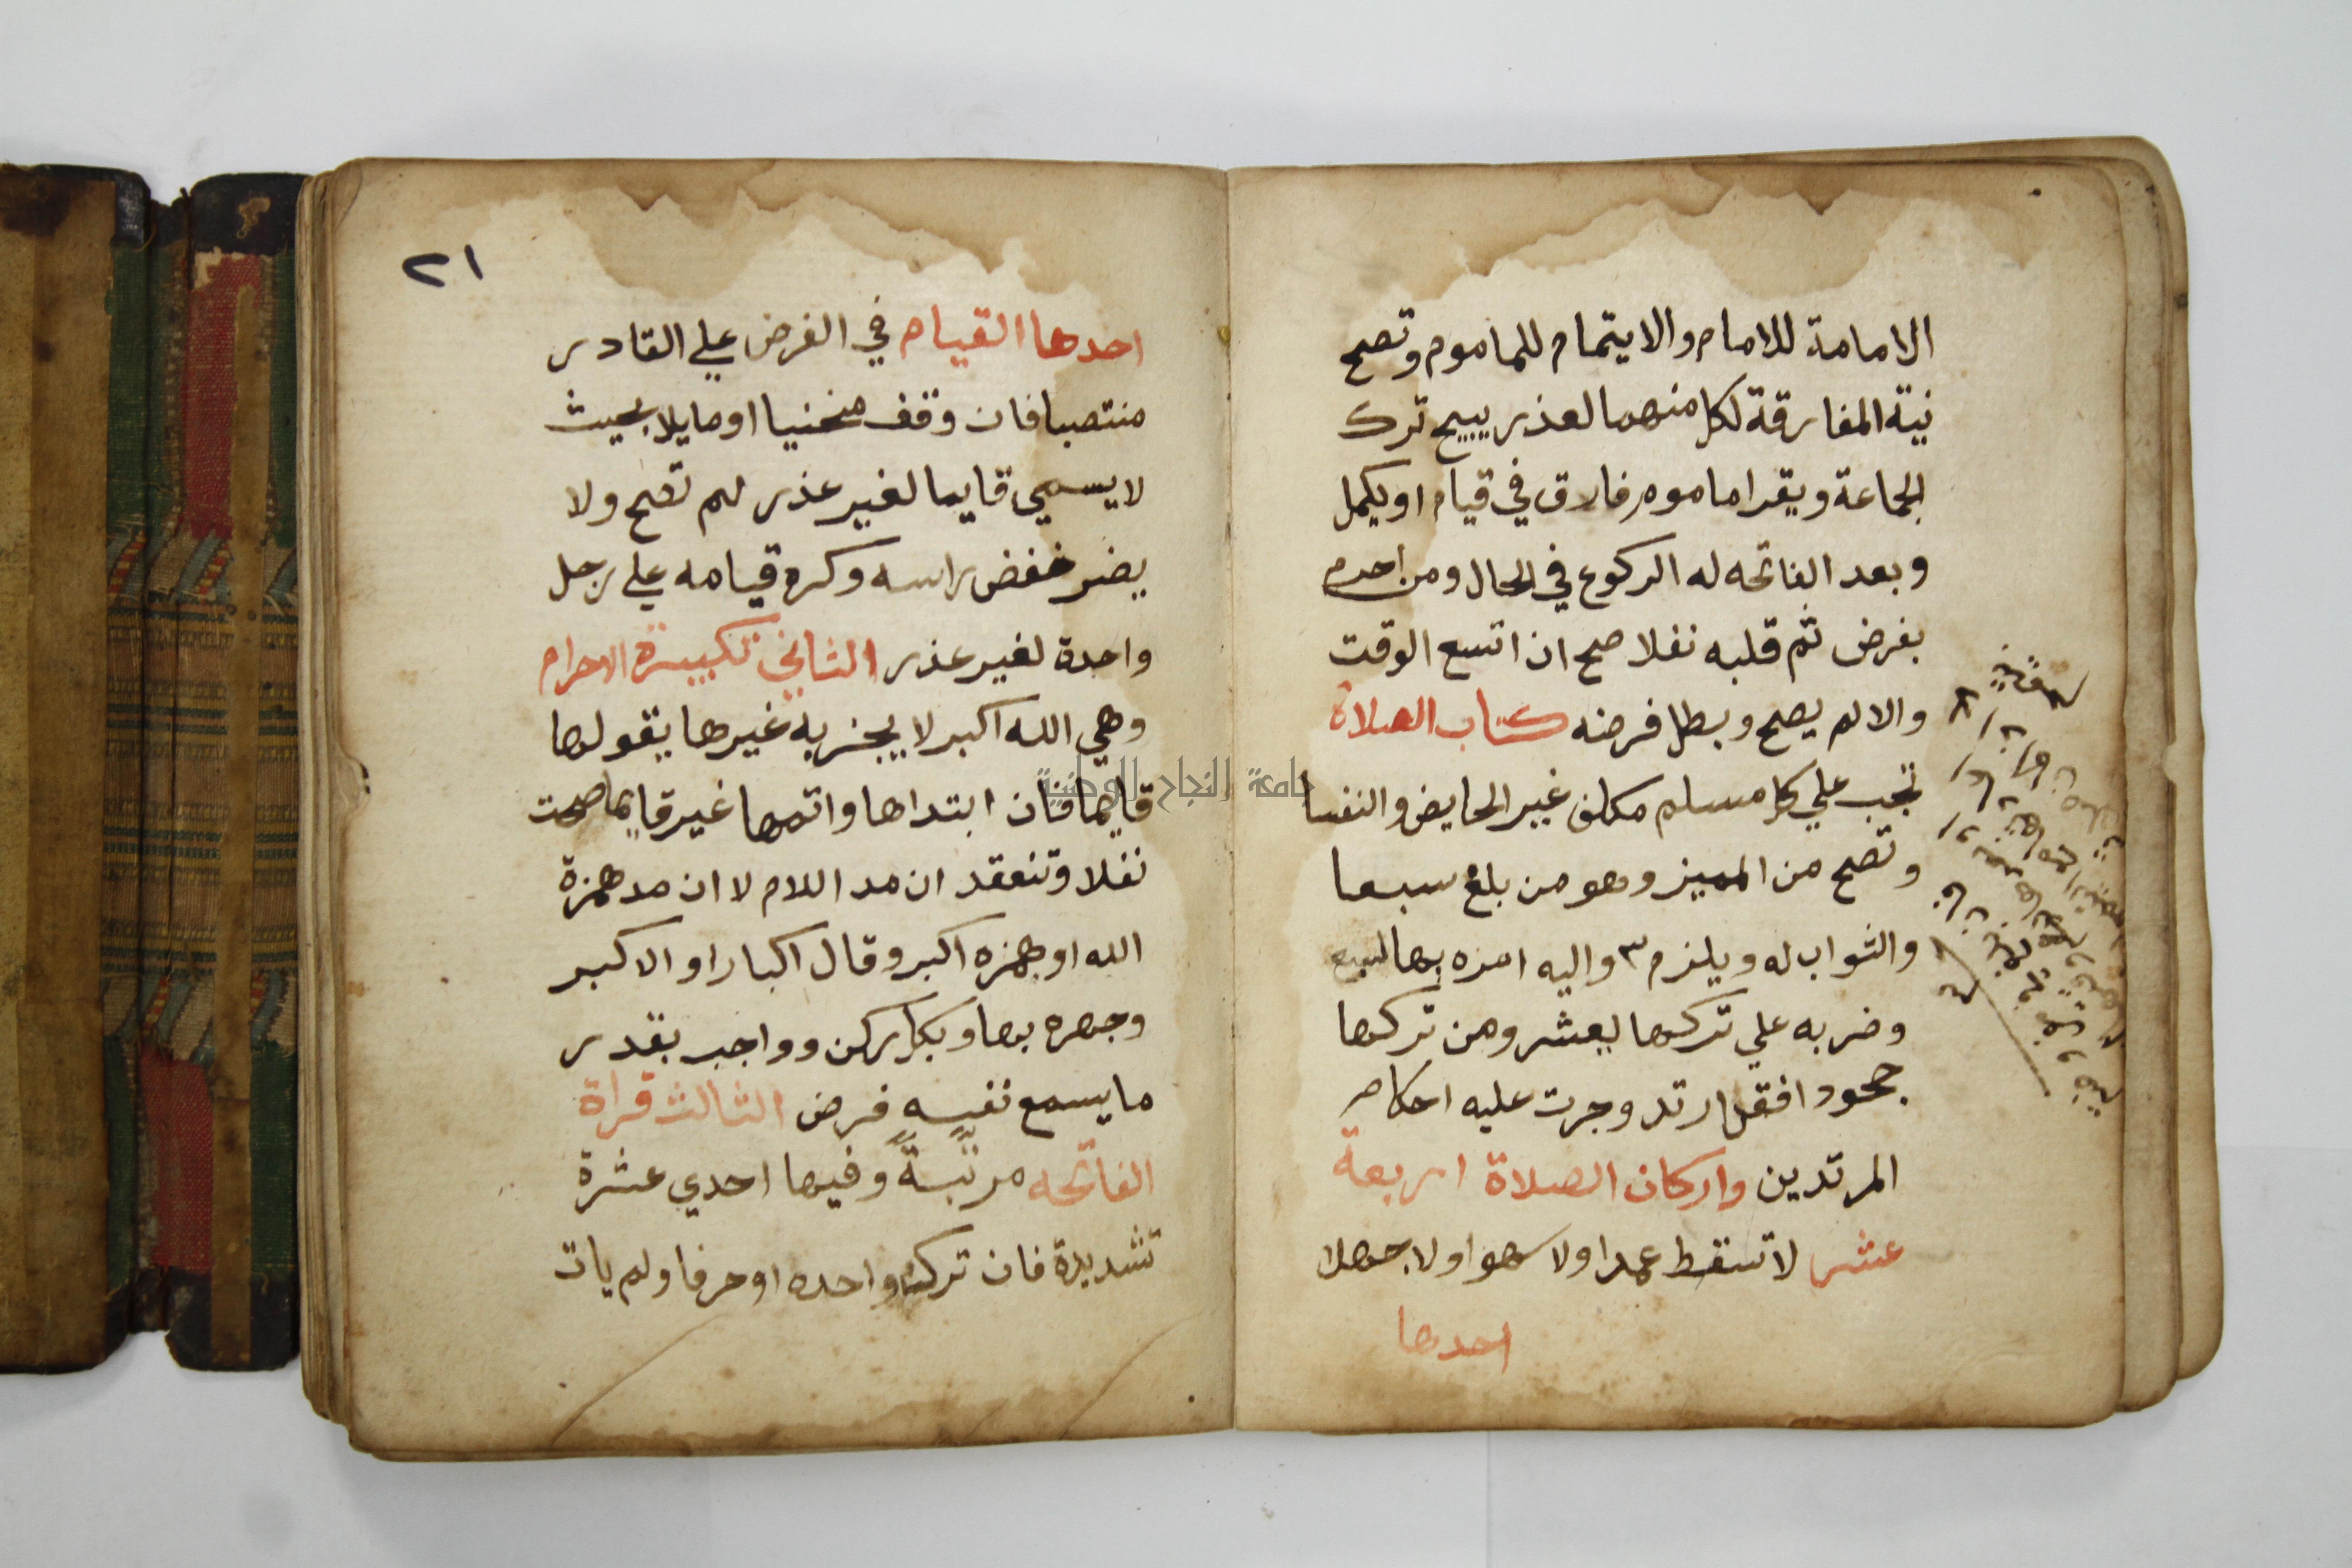 الامامة للامام والايتمام للماموم وتصح
نية المفارقة لكل منهما لعذر يبيح ترك
الجماعة ويقرا ماموم فارق في قيام او يكمل
وبعد الفاتحه له الركوع في الحال ومن احرم
بفرض ثم قلبه نفلا صح ان اتسع الوقت
والا لم يصح وبطل فرضه كتاب الصلاة
تجب علي كل مسلم مكلف غير الحايض والنفسا
وتصح من المميز وهو من بلغ سبعا
والثواب له ويلزم واليه امره بها لسبع
وضربه علي تركها لعشر ومن تركها
جحودا فقد ارتد وجرت عليه احكام
المرتدين واركان الصلاة اربعة
عشر لا تسقط عمدا ولا سهوا ولا جهلا
احدها
٢١
احدها القيام في الفرض علي القادر
منتصبا فان وقف منحنيا او مايلا بحيث
لا يسمي قايما لغير عذر لم تصح ولا
يضر خفض راسه وكره قيامه علي رجل
واحدة لغير عذر الثاني تكبيرة الاحرام
وهي الله اكبر لا يجزيه غيرها يقولها
قايما فان ابتداها واتمها غير قايما صحت
نفلا وتنعقد ان مد اللام لا ان مد همزة
الله او همزه اكبر وقال اكبار او الاكبر
وجهره بها وبكل ركن وواجب بقدر
ما يسمع نفسه فرض الثالث قراة
الفاتحه مرتبة وفيها احدي عشرة
تشديدة فان ترك واحده او حرفا ولم يات
جامعة النجاح الوطنية